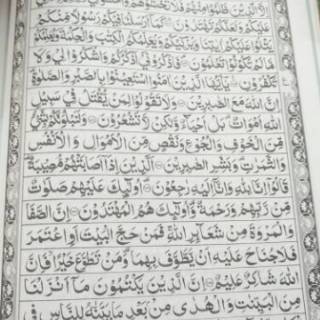 الَّذِيْنَ ظَلَمُوْا مِنْهُمْ فَلَا تَخْشَوْهُمْ وَاخْشَوْنِيْ وَلِاُتِمَّ نِعْمَتِيْ
عَلَيْكُمْ وَلَعَلَّكُمْ تَهْتَدُوْنَ كَمَآ اَرْسَلْنَا فِيْكُمْ رَسُوْلًا مِّنْكُمْ
يَتْلُوْا عَلَيْكُمْ اٰيٰتِنَا وَيُزَكِّيْكُمْ وَيُعَلِّمُكُمُ الْكِتٰبَ وَالْحِكْمَةَ وَيُعَلِّمُكُمْ
مَّا لَمْ تَكُوْنُوْا تَعْلَمُوْنَ فَاذْكُرُوْنِيْٓ اَذْكُرْكُمْ وَاشْكُرُوْا لِيْ وَلَا
تَكْفُرُوْنِ يٰٓاَيُّهَا الَّذِيْنَ اٰمَنُوا اسْتَعِيْنُوْا بِالصَّبْرِ وَالصَّلٰوةِ
اِنَّ اللّٰهَ مَعَ الصّٰبِرِيْنَ وَلَا تَقُوْلُوْا لِمَنْ يُّقْتَلُ فِيْ سَبِيْلِ
اللّٰهِ اَمْوَاتٌ بَلْ اَحْيَآءٌ وَّلٰكِنْ لَّا تَشْعُرُوْنَ وَلَنَبْلُوَنَّكُمْ بِشَيْءٍ
مِّنَ الْخَوْفِ وَالْجُوْعِ وَنَقْصٍ مِّنَ الْاَمْوَالِ وَالْاَنْفُسِ
وَالثَّمَرٰتِ وَبَشِّرِ الصّٰبِرِيْنَ الَّذِيْنَ اِذَآ اَصَابَتْهُمْ مُّصِيْبَةٌ
قَالُوْٓا اِنَّا لِلّٰهِ وَاِنَّآ اِلَيْهِ رٰجِعُوْنَ اُولٰٓئِكَ عَلَيْهِمْ صَلَوٰتٌ
مِّنْ رَّبِّهِمْ وَرَحْمَةٌ وَاُولٰٓئِكَ هُمُ الْمُهْتَدُوْنَ اِنَّ الصَّفَا
وَالْمَرْوَةَ مِنْ شَعَآئِرِ اللّٰهِ فَمَنْ حَجَّ الْبَيْتَ اَوِ اعْتَمَرَ
فَلَا جُنَاحَ عَلَيْهِ اَنْ يَّطَّوَّفَ بِهِمَا وَمَنْ تَطَوَّعَ خَيْرًا فَاِنَّ
اللّٰهَ شَاكِرٌ عَلِيْمٌ اِنَّ الَّذِيْنَ يَكْتُمُوْنَ مَآ اَنْزَلْنَا
مِنَ الْبَيِّنٰتِ وَالْهُدٰى مِنْۢ بَعْدِ مَا بَيَّنّٰهُ لِلنَّاسِ فِي